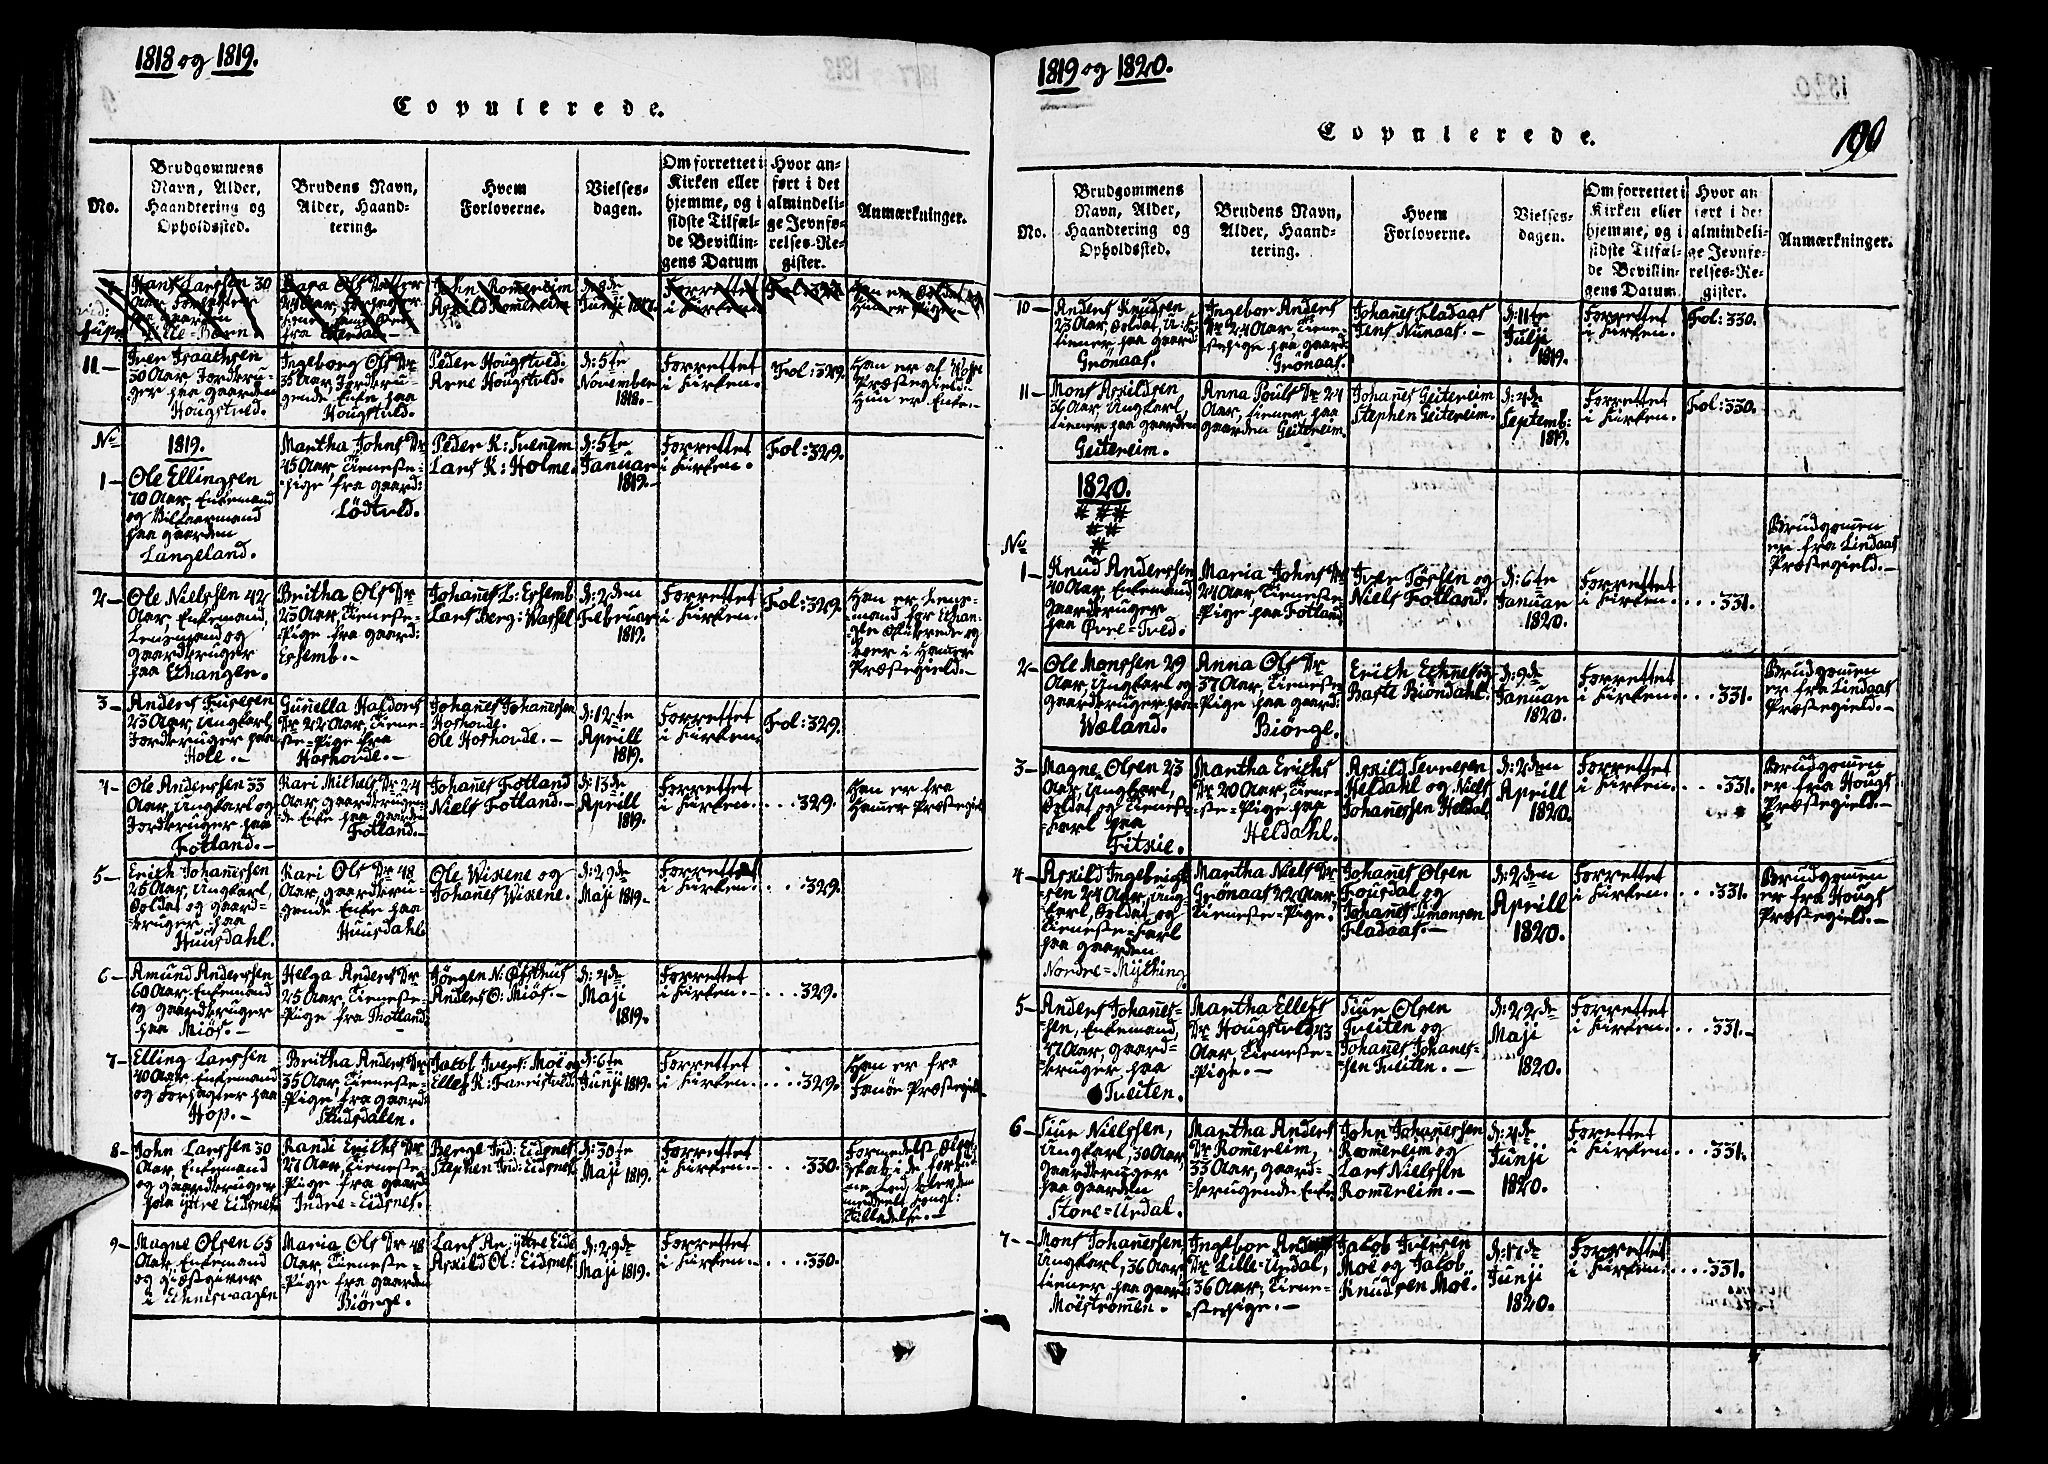 1818 og 1819.
Copulerede.
No.
Brudgommens
Navn, Alder,
Haandtering og
Opholdssted.
Brudens Navn,
Alder, Haand-
tering.
Hvem
Forloverne.
Vielses-
dagen.
Om forrettet i
Kirken eller
hjemme, og i
sidste Tilfæl-
de Bevillin-
gens Datum
Hvor an-
ført i det
almindeli-
ge Jevnfø-
relses-Re-
gister.
Anmærkninger.
Hans Larssen 30
Aar
paa Gaarden
Lille-
Ols Datter
John Romereim
Arkild Romereim
Junji 1817.
Forrettet
i Kirken
11 —
Iver Isaachsen
30 Aar, Jordbru-
ger paa Gaarden
Hougstvld.
Ingeborg Ols Dr
35 Aar, Jordbru-
gende Enke paa
Hougstvld.
Peder Hougstvld.
Arne Hougstvld.
d: 5te
November
1818. —
Forrettet
i Kirken.
Fol: 329.
Han er af
Præstegield.
Hun er Enke. —
No
1819.
1 —
Ole Ellingsen
70 Aar, Enkemand
og Vilkaarmand
paa Gaarden
Langeland.
Martha Johns Dr
45 Aar, Tieneste-
Pige fra Gaard:
Lødtvld.
Peder K: Svenem
Lars K: Holme.
d: 5te
Januar
1819. —
Forrettet
i Kirken.
Fol: 329.
2 —
Ole Nielssen 42
Aar, Enkemand,
Lensmand og
Gaardbruger
paa Echangen.
Britha Ols Dr
23 Aar, Tieneste-
Pige fra Gaard:
Ersemb. —
Johanes L: Ersemb
Lars Berg: Wassel
d: 2den
Februar
1819.
Forrettet
i Kirken.
Fol: 329.
Han er Lens-
mand for Echan-
ger Skibrede og
boer i Hammer
Præstegield. —
3 —
Anders
23 Aar, Ungkarl,
Jordbruger paa
Hole. —
Gunella Haldors
Dr 22 Aar, Tiene-
ste-Pige fra
Hoshovde. —
Johanes Johanessen
Hoshovde.
Ole Hoshovde. —
d: 12te
Aprill
1819.
Forrettet
i Kirken.
Fol: 329.
4 —
Ole Anderssen 33
Aar, Ungkarl og
Jordbruger paa
Fotland. —
Kari Mikkels Dr 24
Aar, Gaardbrugen-
de Enke paa Gaarden
Fotland. —
Johanes Fotland
Niels Fotland. —
d: 13de
Aprill
1819.
Forrettet
i Kirken.
329.
Han er fra
Hammer Præstegield
5 —
Erich Johanessen
25 Aar, Ungkarl,
Soldat og Gaard-
bruger paa
Huusdahl.
Kari Ols Dr 48
Aar, Gaardbru-
gende Enke paa
Huusdahl.
Ole Wikene og
Johanes Wikene.
d: 29de
Maji 1819. —
Forrettet
i Kirken.
329.
6 —
Amund Anderssen
60 Aar, Enkemand
og Gaardbruger
paa Miøs. —
Helga Anders Dr
25 Aar, Tieneste-
Pige fra Thotland.
Jørgen N: Østhus
Anders O: Miøs. —
d: 2de
Maji
1819.
Forrettet
i Kirken.
329.
7 —
Elling Larssen
40 Aar, Enkemand
og Forpagter paa
Hop. —
Britha Anders Dr
35 Aar, Tieneste-
Pige fra Gaard:
Studsdalen.
Jacob Ivers: Moe og
Elles K:
d: 6te
Junji 1819.
Forrettet
i Kirken.
329.
Han er fra
Præstegield
8 —
John Larssen 30
Aar, Enkemand
og Gaardbruger
paa Yttre Eidsnes
Randi Erichs Dr
27 Aar, Tieneste-
Pige fra Gaard:
Indre-Eidsnes.
Berge Ind: Eidsnes
Stephen Ind: Eidsnes
d: 30te
Maji 1819.
Forrettet
i Kirken.
330.
Tilladelse. —
9 —
Magne Olsen 65
Aar, Enkemand
og Giæstgiver
i
Maria Ols Dr 48
Aar, Tieneste-
Pige fra Gaarden
Biørge.
Lars A: Yttre Eids
Arkild O: Eidsnes.
d: 29de
Maji 1819.
Forrettet
i Kirken.
330.
1819 og 1820.
Copulerede.
190
No.
Brudgommens
Navn, Alder,
Haandtering og
Opholdssted.
Brudens Navn,
Alder, Haand-
tering.
Hvem
Forloverne.
Vielses-
dagen.
Om forrettet i
Kirken eller
hjemme, og i
sidste Tilfæl-
de Bevillin-
gens Datum.
Hvor an
ført i det
almindeli-
ge Jevnfø-
relses-Re-
gister.
Anmærkninger.
10 —
Anders Knudsen
23 Aar, Soldat,
tiener paa Gaard:
Grønaas.
Ingebor Anders
Dr 24 Aar, Tiene-
stepige paa Gaard:
Grønaas.
Johanes Fladaas
Jens Nunaas. —
d: 11te
Julji
1819.
Forrettet
i Kirken.
Fol: 330.
11 —
Mons Arkildsen
34 Aar, Ungkarl,
tiener paa Gaarden
Geitereim.
Anna Pouls Dr 24
Aar, tiener paa
Gaarden Geitereim.
Johanes Geitereim
Stephen Geitereim.
d: 4de
Septemb:
1819.
Forrettet
i Kirken.
Fol: 330.
1820.
No
1 —
Knud Anderssen
40 Aar, Enkemand
Gaardbruger
paa Øvre-Tved.
Maria Johns Dr
24 Aar, Tieneste-
Pige paa Fotland
Iver Torsen og
Niels Fotland.
d: 6te
Januar
1820.
Forrettet
i Kirken.
331.
Brudgomen
er fra Lindaas
Præstegield. —
2 —
Ole Monssen 29
Aar, Ungkarl og
Gaardbruger paa
Wæland.
Anna Ols Dr
37 Aar, Tieneste-
Pige paa Gaard:
Biørge.
Erich Echnes og
Baste Biøndahl.
d: 9de
Januar
1820.
Forrettet
i Kirken.
331.
Brudgomen
er fra Lindaas
Præstegield. —
3 —
Magne Olsen 23
Aar, Ungkarl,
Soldat og Tieneste-
Karl paa
Fitxie.
Martha Erichs
Dr 20 Aar, Tiene-
ste-Pige paa
Heldahl.
Arkild
Heldahl og Niels
Johanessen Heldal.
d: 2den
Aprill
1820.
Forrettet
i Kirken.
331.
Brudgomen
er fra Hougs
Præstegield. —
4 —
Arkild Ingebrigt-
sen 24 Aar, Ung-
karl, Soldat og
Tieneste-Karl
paa Gaarden
Nordre-Mykting
Martha Niels Dr
Grønaas 22 Aar,
Tieneste-Pige.
Johanes Olsen
Fousdal og
Johanes Simonsen
Fladaas. —
d: 2den
Aprill
1820.
Forrettet
i Kirken.
331.
Brudgomen
er fra Hougs
Præstegield. —
5 —
Anders Johanes-
sen, Enkemand,
47 Aar, Gaard-
bruger paa
Tveiten.
Martha Elless
Dr Hougstvld 43
Aar, Tieneste-
Pige. —
Siur Olsen
Tveiten og
Johanes Johanes-
sen Tveiten. —
d: 22de
Maji
1820.
Forrettet
i Kirken.
331. —
6 —
Siur Nielssen,
Ungkarl, 30 Aar,
Gaardbruger
paa Gaarden
Store-Urdal.
Martha Anders
Dr Romereim,
33 Aar, Gaard-
brugende Enke
John Johanessen
Romereim og
Lars Nielssen
Romereim. —
d: 4de
Junji
1820.
Forrettet
i Kirken.
331.
7 —
Mons Johanessen,
Ungkarl, 36 Aar
tiener paa Gaard:
Molstrømen.
Ingebor Anders
Dr Lille-Urdal,
36 Aar, Tiene-
stepige. —
Jacob Iversen
Moe og Jacob
Knudsen Moe.
d: 17de
Junji
1820.
Forrettet
i Kirken.
331.